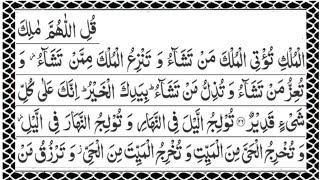 قُلِ اللّٰهُمَّ مٰلِكَ
الْمُلْكِ تُؤْتِی الْمُلْكَ مَنْ تَشَآءُ وَ تَنْزِعُ الْمُلْكَ مِمَّنْ تَشَآءُ٘ وَ
تُعِزُّ مَنْ تَشَآءُ وَ تُذِلُّ مَنْ تَشَآءُؕ بِیَدِكَ الْخَیْرُؕ اِنَّكَ عَلٰی كُلِّ
شَیْءٍ قَدِیْرٌ۝۲۶ تُوْلِجُ الَّیْلَ فِی النَّهَارِ وَ تُوْلِجُ النَّهَارَ فِی الَّیْلِ٘
وَ تُخْرِجُ الْحَیَّ مِنَ الْمَیِّتِ وَ تُخْرِجُ الْمَیِّتَ مِنَ الْحَیِّ٘ وَ تَرْزُقُ مَنْ